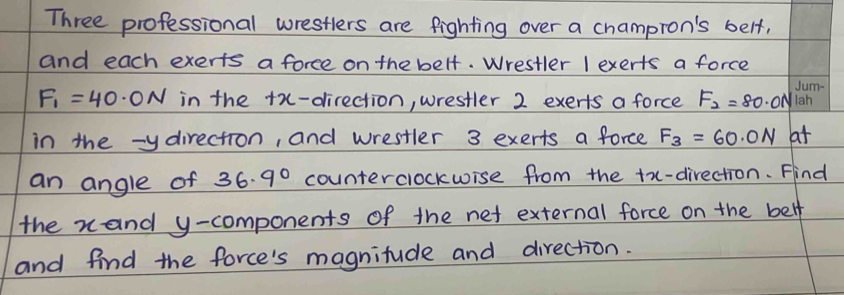 Three professional wrestlers are fighting over a champion's belt,
and each exerts a force on the belt. Wrestler 1 exerts a force
F₁ = 40.0N in the +x-direction, wrestler 2 exerts a force F₂ = 80.0N
Jum-
lah
in the -y direction, and wrestler 3 exerts a force F₃ = 60.0N at
an angle of 36.9° counterclockwise from the +x-direction. Find
the x and y-components of the net external force on the belt
and find the force's magnitude and direction.